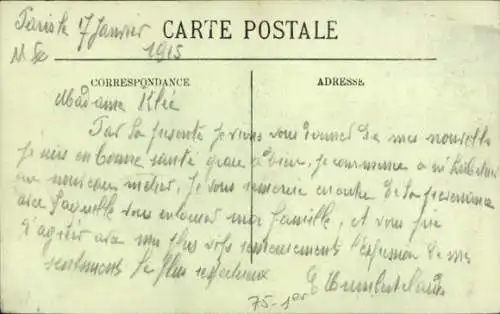 Paris le 17 Janvier
1915
CARTE POSTALE
CORRESPONDANCE
ADRESSE
Madame Klée
Par la présente je viens vous donner de mes nouvelles
je suis en bonne santé grace a Dieu, je commence a m'habituer
au nouveau métier, je vous remercie encore de la prévenance
avec laquelle vous entourez ma famille, et vous prie
d'agréer avec mes plus vifs remerciements l'expression de mes
sentiments le plus respectueux
75-1er